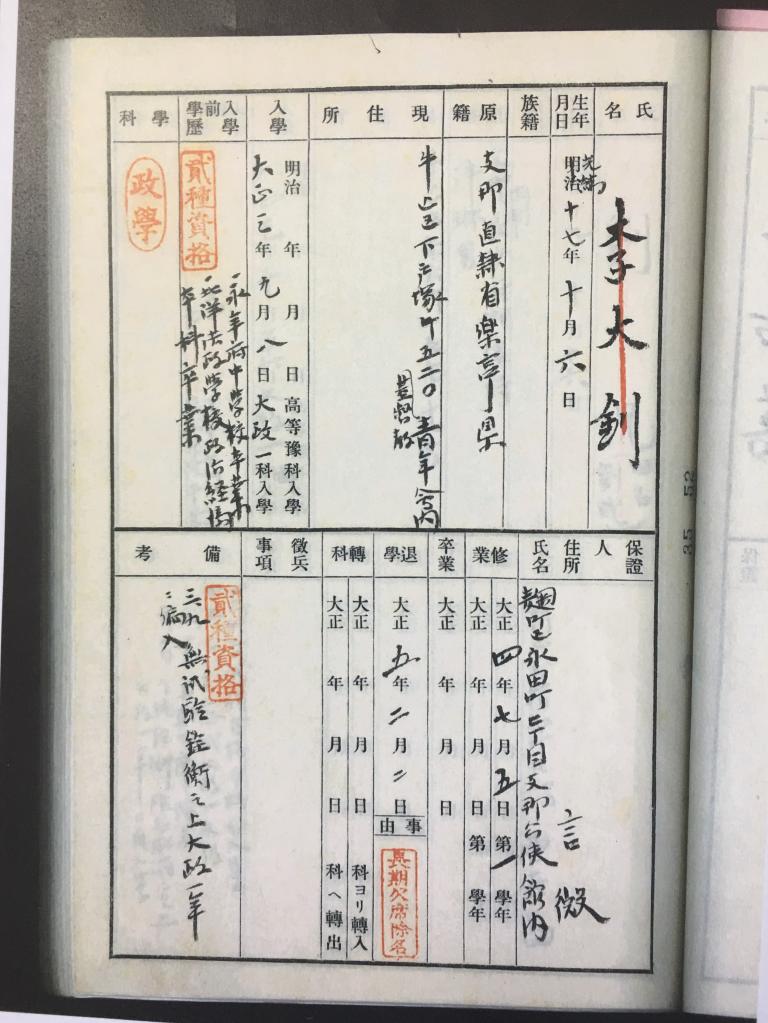 氏名
李大釗
生年月日
光緒
明治十七年十月六日
族籍
原籍
支那直隷省樂亭県
現住所
牛込区下戸塚町五二〇青年会内
基督教
入學
明治 年 月 日高等豫科入學
大正三年九月八日大政一科入學
入學前學歷
貳種資格
一、永年府中学校卒業
一、北洋法政学校政治経済
本科卒業
學科
政學
保證人
住所
氏名
麹町区永田町二丁目支那公使館内
言微
修業
大正四年七月五日第一學年
大正 年 月 日第 學年
卒業
大正 年 月 日
退學
大正五年二月二日
事由
長期欠席除名
轉科
大正 年 月 日 科ヨリ轉入
大正 年 月 日 科ヘ轉出
徵兵事項
備考
貳種資格
三、九、無試驗銓衡之上大政一年
ニ編入
35 52
保證